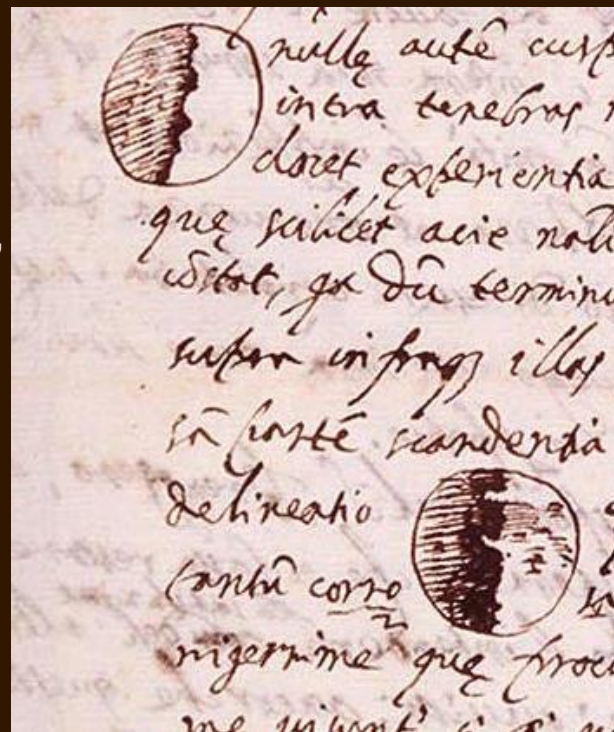 nullę autē cusp
intra tenebras
docet experientia
quę scilicet acie
cōstat, dū termin
supra infraq illas
partē scandentia
delineatio
tantū corro
nigerrime quę proc
me